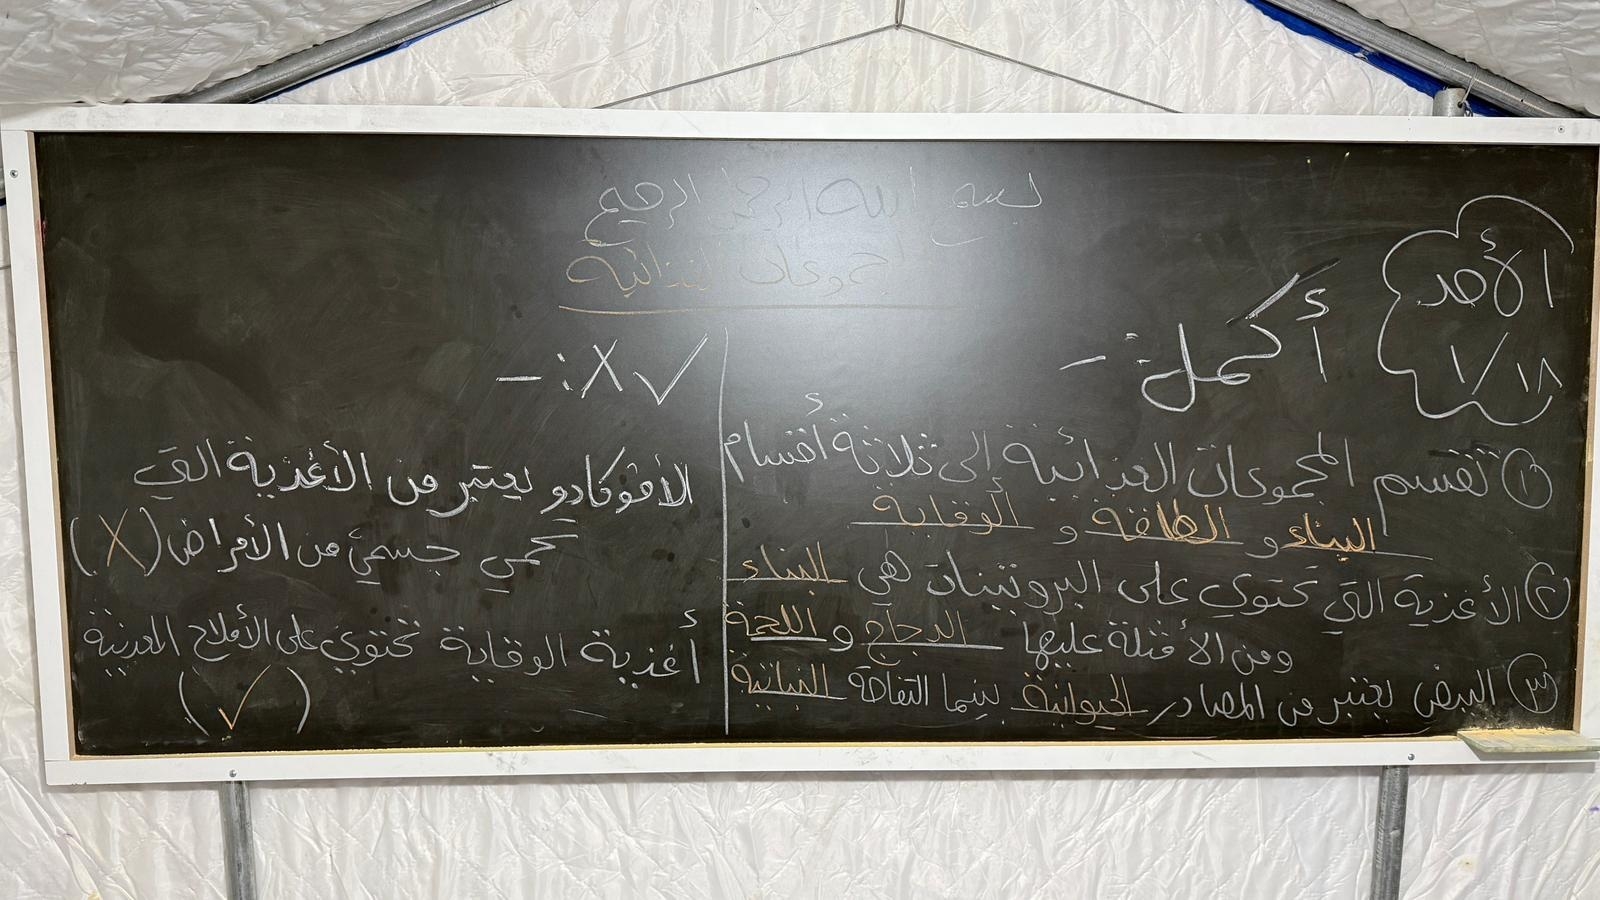 بسم الله الرحمن الرحيم
المجموعات الغذائية
الأحد
١٨/١
أكمل :-
١ تنقسم المجموعات الغذائية إلى ثلاثة أقسام
البناء و الطاقة و الوقاية
٢ الأغذية التي تحتوي على البروتينات هي البناء
ومن الأمثلة عليها الدجاج و اللحمة
٣ البيض يعتبر من المصادر الحيوانية بينما التفاحة النباتية
✓ X :-
الأفوكادو يعتبر من الأغذية التي
تحمي جسمي من الأمراض (X)
أغذية الوقاية تحتوي على الأملاح المعدنية
(✓)